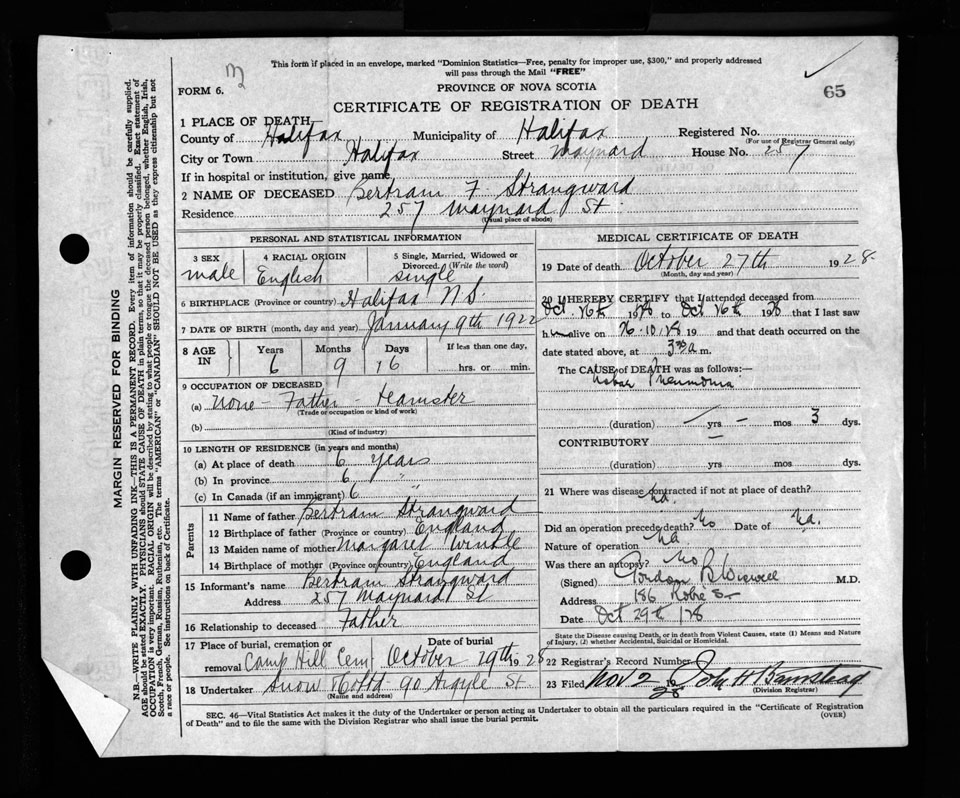 This form if placed in an envelope, marked "Dominion Statistics—Free, penalty for improper use, $300," and properly addressed
will pass through the Mail "FREE"
FORM 6.
PROVINCE OF NOVA SCOTIA
65
CERTIFICATE OF REGISTRATION OF DEATH
1 PLACE OF DEATH
County of Halifax Municipality of Halifax Registered No.
(For use of Registrar General only)
City or Town Halifax Street Maynard House No. 257
If in hospital or institution, give name
2 NAME OF DECEASED Bertram F. Strangward
Residence 257 Maynard St.
(Usual place of abode)
PERSONAL AND STATISTICAL INFORMATION
3 SEX 4 RACIAL ORIGIN 5 Single, Married, Widowed or
Divorced. (Write the word)
male English single
6 BIRTHPLACE (Province or country) Halifax N.S.
7 DATE OF BIRTH (month, day and year) January 9th 1922
8 AGE IN Years Months Days If less than one day,
6 9 16 hrs. or min.
9 OCCUPATION OF DECEASED
(a) None - Father - teamster
(Trade or occupation or kind of work)
(b)
(Kind of industry)
10 LENGTH OF RESIDENCE (in years and months)
(a) At place of death 6 years
(b) In province 6 "
(c) In Canada (if an immigrant) 6 "
Parents
11 Name of father Bertram Strangward
12 Birthplace of father (Province or country) England
13 Maiden name of mother Margaret Winkle
14 Birthplace of mother (Province or country) England
15 Informant's name Bertram Strangward
Address 257 Maynard St
16 Relationship to deceased Father
17 Place of burial, cremation or Date of burial
removal Camp Hill Cem. October 29th 1928
18 Undertaker Snow & Co Ltd 90 Argyle St
(Name and address)
MEDICAL CERTIFICATE OF DEATH
19 Date of death October 27th 1928
(Month, day and year)
20 I HEREBY CERTIFY that I attended deceased from
Oct. 26th 1928 to Oct 26th 1928 that I last saw
h im alive on 26.10.28 19 and that death occurred on the
date stated above, at 3 30 a m.
The CAUSE of DEATH was as follows:—
Lobar Pneumonia
(duration) — yrs — mos 3 dys.
CONTRIBUTORY —
(duration) yrs mos dys.
21 Where was disease contracted if not at place of death?
na.
Did an operation precede death? No Date of na.
Nature of operation na
Was there an autopsy? No
(Signed) Gordon B Wiswell M.D.
Address 186 Robie St
Date Oct 29th /28
State the Disease causing Death, or in death from Violent Causes, state (1) Means and Nature
of Injury, (2) whether Accidental, Suicidal or Homicidal.
22 Registrar's Record Number
23 Filed Nov 2 1928 John H Barnstead
(Division Registrar)
SEC. 46—Vital Statistics Act makes it the duty of the Undertaker or person acting as Undertaker to obtain all the particulars required in the "Certificate of Registration
of Death" and to file the same with the Division Registrar who shall issue the burial permit.
(OVER)
MARGIN RESERVED FOR BINDING
N.B.—WRITE PLAINLY WITH UNFADING INK—THIS IS A PERMANENT RECORD. Every item of information should be carefully supplied.
AGE should be stated EXACTLY. PHYSICIANS should STATE CAUSE OF DEATH in plain terms, so that it may be properly classified. Exact statement of
OCCUPATION is very important. RACIAL ORIGIN will be described by stating to what people or tongue the deceased person belonged, whether English, Irish,
Scotch, French, German, Russian, Ruthenian, etc. The terms "AMERICAN" or "CANADIAN" SHOULD NOT BE USED as they express citizenship but not
a race or people. See instructions on back of Certificate.